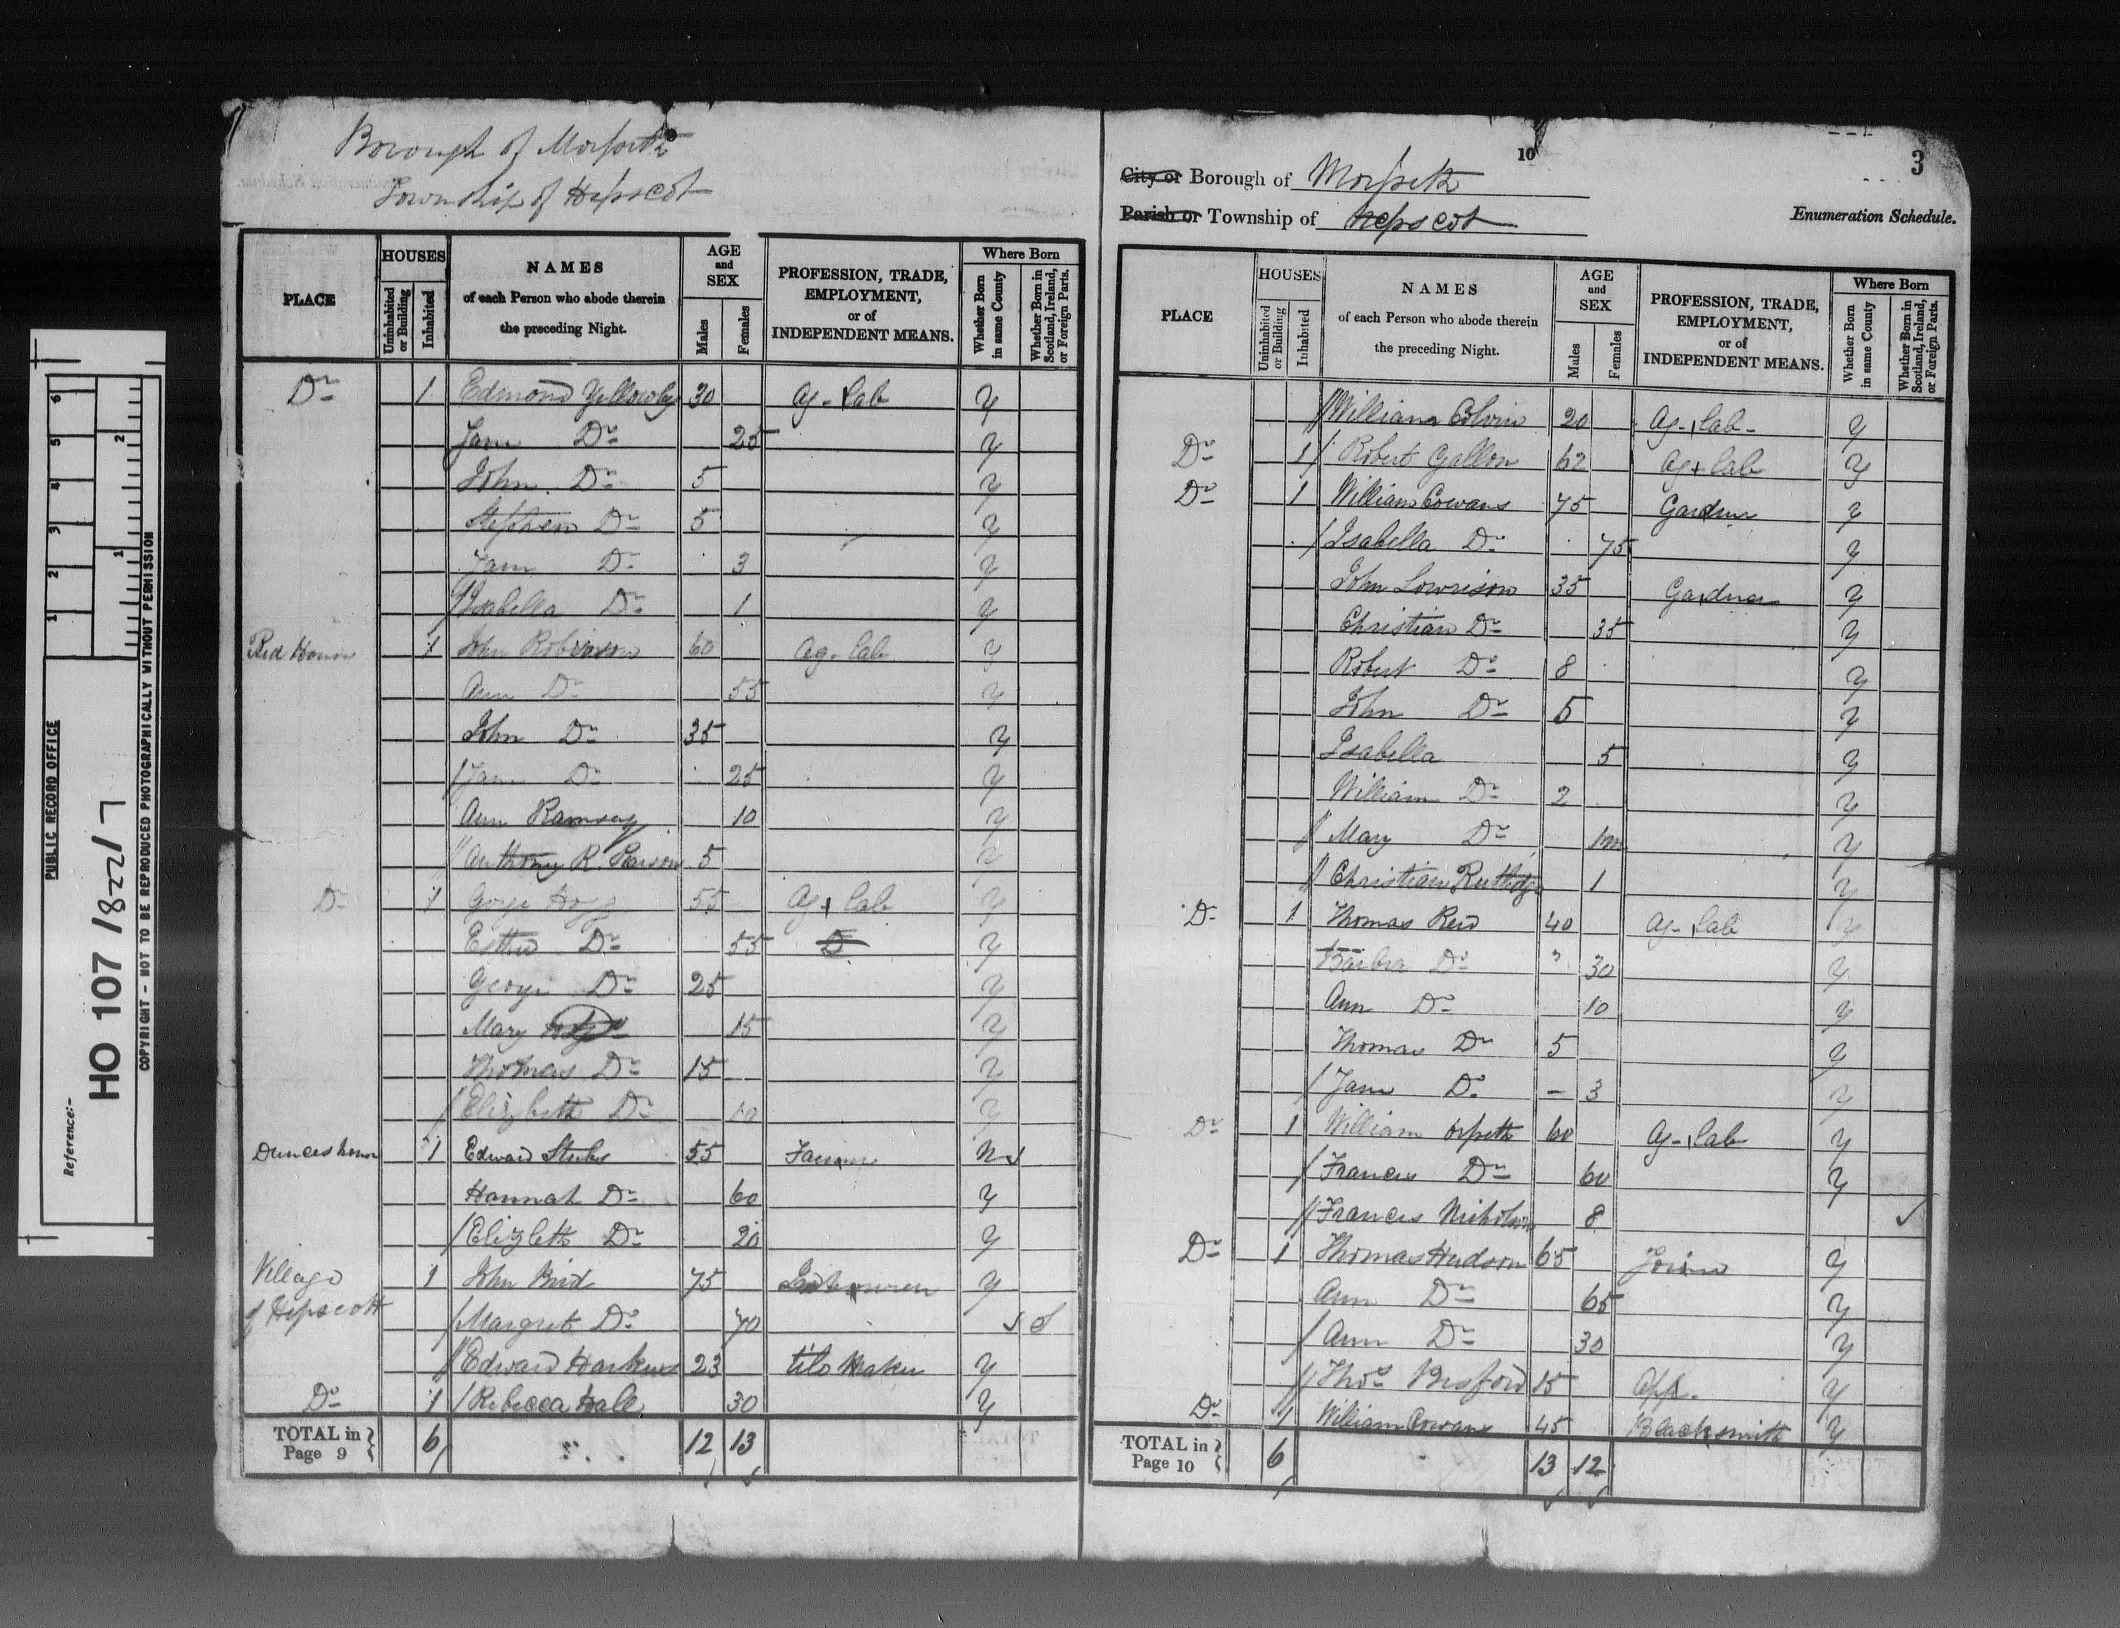 Borough of Morpeth
Township of Hepscot
PLACE
HOUSES
Uninhabited or Building
Inhabited
NAMES
of each Person who abode therein
the preceding Night.
AGE
and
SEX
Males
Females
PROFESSION, TRADE,
EMPLOYMENT,
or of
INDEPENDENT MEANS.
Where Born
Whether Born in same County
Whether Born in Scotland, Ireland, or Foreign Parts.
Do 1 Edmond Yellowley 30 Ag. Lab y
Jane Do 25 y
John Do 5 y
Stephen Do 5 y
Jane Do 3 y
Isabella Do 1 y
Red House 1 John Robinson 60 Ag. Lab y
Ann Do 55 y
John Do 35 y
Jane Do 25 y
Ann Ramsey 10 y
Anthony R. Pearson 5 y
Do 1 55 Ag. Lab y
Esther Do 55 D y
George Do 25 y
Mary Do 15 y
Thomas Do 15 y
Elizbeth Do 10 y
1 Edward 55 Farmer N
Hannah Do 60 y
Elizbeth Do 20 y
Village 1 John Bird 75 y
of Hepscott
Margret Do 70 S
Edward 23 tile Maker y
Do 1 Rebecca Hall 30 y
TOTAL in Page 9 6 12 13
10
3
City or Borough of Morpeth
Parish or Township of Hepscot
Enumeration Schedule.
PLACE
HOUSES
Uninhabited or Building
Inhabited
NAMES
of each Person who abode therein
the preceding Night.
AGE
and
SEX
Males
Females
PROFESSION, TRADE,
EMPLOYMENT,
or of
INDEPENDENT MEANS.
Where Born
Whether Born in same County
Whether Born in Scotland, Ireland, or Foreign Parts.
William Colvin 20 Ag. Lab y
Do 1 Robert Gallon 62 Ag. Lab y
Do 1 William Cowans 75 Gardner y
Isabella Do 75 y
John Lowrison 35 Gardner y
Christian Do 35 y
Robert Do 8 y
John Do 5 y
Isabella 5 y
William Do 2 y
Mary Do 1m y
Christian Rutlidge 1 y
Do 1 Thomas Reid 40 Ag. Lab y
Barbra Do 30 y
Ann Do 10 y
Thomas Do 5 y
Jane Do 3 y
Do 1 William Orpeth 60 Ag. Lab y
Frances Do 60 y
Frances Nicholson 8
Do 1 Thomas Hudson 65 Joiner y
Ann Do 65 y
Ann Do 30 y
Thos Besford 15 App. y
Do 1 William Cowans 45 Blacksmith y
TOTAL in Page 10 6 13 12
PUBLIC RECORD OFFICE
Reference:-
HO 107 / 822/7
COPYRIGHT - NOT TO BE REPRODUCED PHOTOGRAPHICALLY WITHOUT PERMISSION
1 2 3 4 5 6
1 2